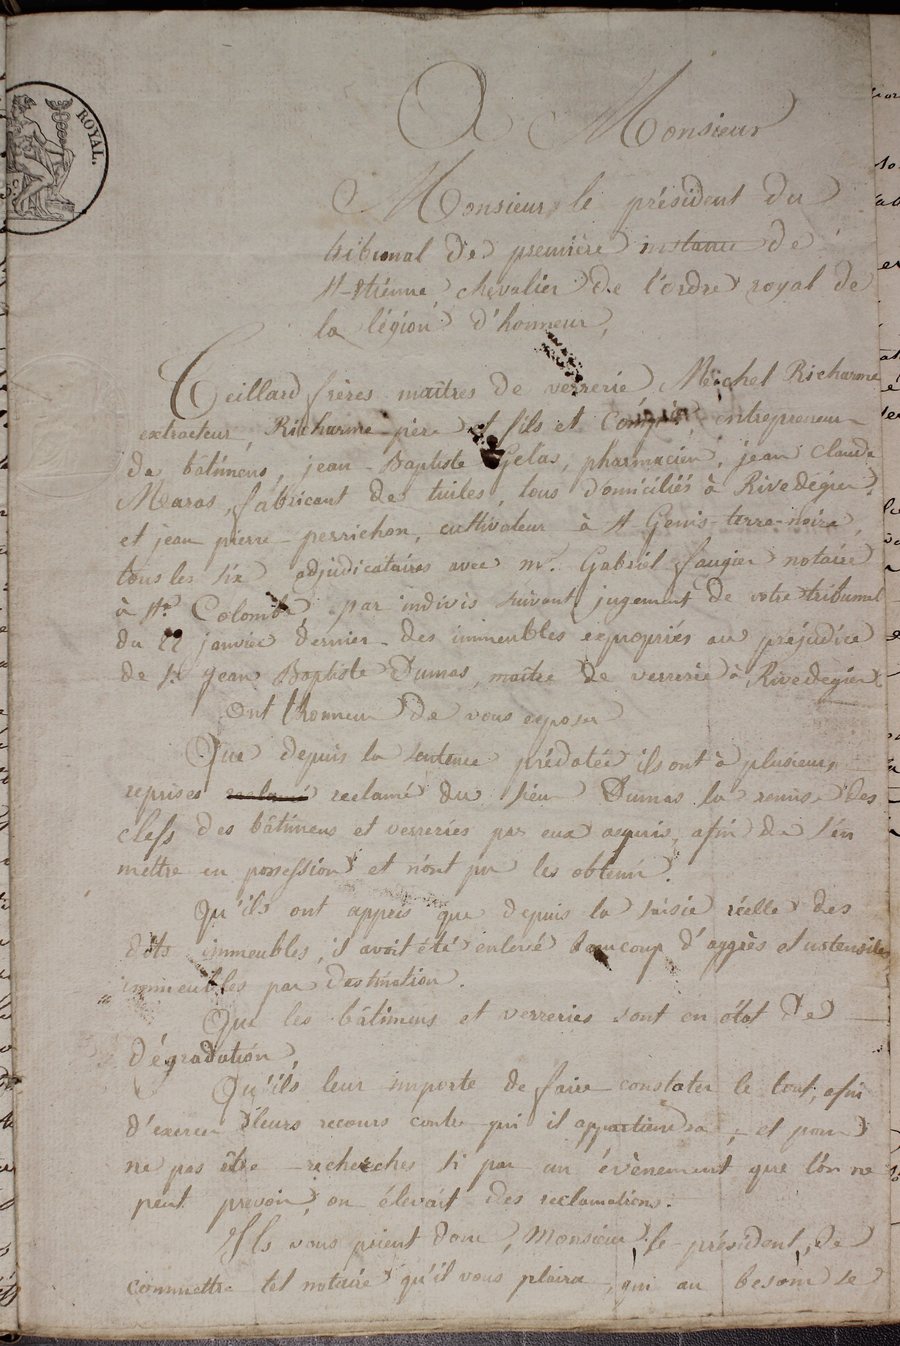 ROYAL.
A Monsieur
Monsieur le président du
tribunal de première instance de
St-étienne, chevalier de l'ordre royal de
la légion d'honneur,
Teillard frères maîtres de verrerie, Michel Richarme
extracteur, Richarme père et fils et Compie, entrepreneur
de bâtimens, jean-Baptiste Gelas, pharmacien, jean Claude
Maras, fabricant de tuiles, tous domiciliés à Rivedegier,
et jean pierre perrichon, cultivateur à St Genis-terre-noire,
tous les six adjudicataires avec mr. Gabriel faugier notaire
à Ste Colombe, par indivis suivant jugement de votre tribunal
du 22 janvier dernier des immeubles expropriés au préjudice
de Sr jean Baptiste Dumas, maître de verrerie à Rivedegier
Ont l'honneur de vous exposer
Que depuis la sentence prédatée ils ont à plusieurs
reprises reclamé du sieur Dumas la remise des
clefs des bâtimens et verreries par eux acquis, afin de s'en
mettre en possession et n'ont pu les obtenir.
Qu'ils ont appris que depuis la saisie réelle des
dits immeubles, il avoit été enlevé beaucoup d'aggrès et ustensiles
immeubles par destination.
Que les bâtimens et verreries sont en état de
dégradation,
Qu'ils leur importe de faire constater le tout, afin
d'exercer leurs recours contre qui il appartiendra, et pour
ne pas être recherchés si par un évènement que l'on ne
peut prevoir, on élevait des reclamations.
Ils vous prient donc, Monsieur le président, de
commettre tel notaire qu'il vous plaira, qui au besoin se